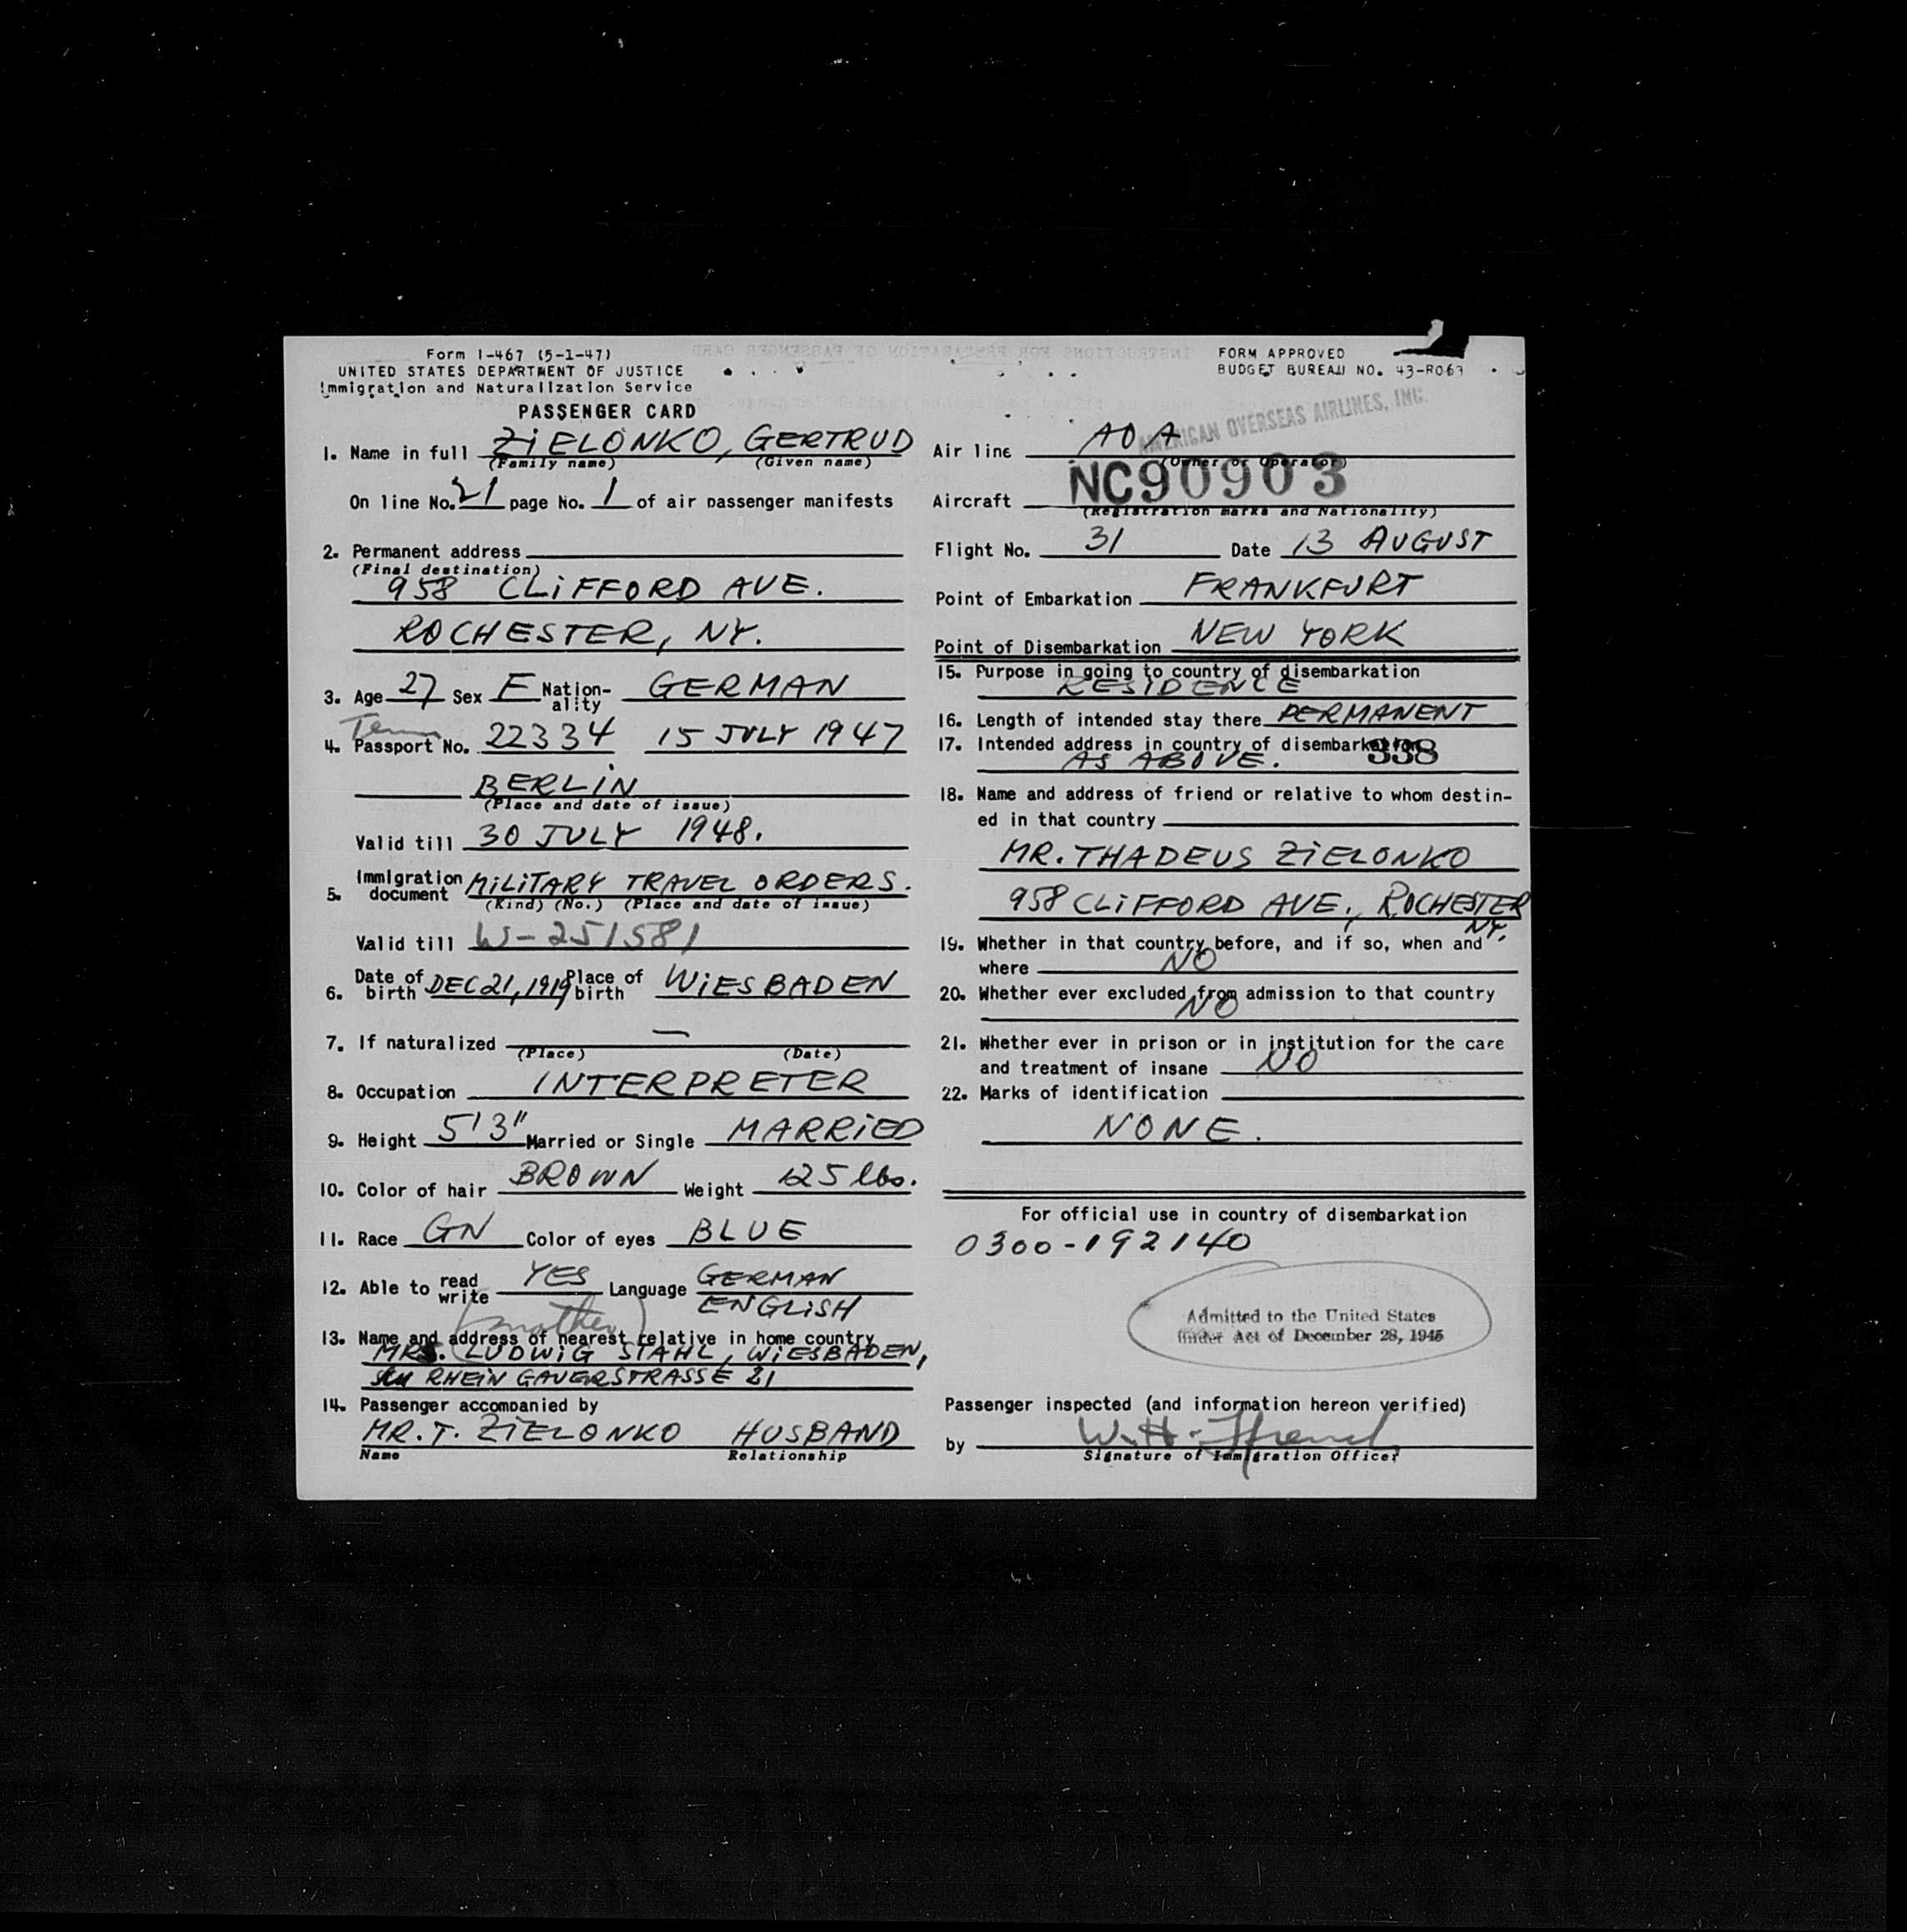 Form I-467 (5-1-47)
UNITED STATES DEPARTMENT OF JUSTICE
Immigration and Naturalization Service
PASSENGER CARD
1. Name in full ZIELONKO, GERTRUD
(Family name) (Given name)
On line No. 21 page No. 1 of air passenger manifests
2. Permanent address
(Final destination)
958 CLIFFORD AVE.
ROCHESTER, NY.
3. Age 27 Sex F Nation-ality GERMAN
4. Passport No. 22334 15 JULY 1947
BERLIN
(Place and date of issue)
Valid till 30 JULY 1948.
5. Immigration document MILITARY TRAVEL ORDERS.
(Kind) (No.) (Place and date of issue)
Valid till W-251581
6. Date of birth DEC 21, 1919 Place of birth WIESBADEN
7. If naturalized —
(Place) (Date)
8. Occupation INTERPRETER
9. Height 5'3" Married or Single MARRIED
10. Color of hair BROWN Weight 125 lbs.
11. Race GN Color of eyes BLUE
12. Able to read write YES Language GERMAN
ENGLISH
(mother)
13. Name and address of nearest relative in home country
MRS. LUDWIG STAHL, WIESBADEN,
RHEIN GAUERSTRASSE 21
14. Passenger accompanied by
MR. T. ZIELONKO HUSBAND
Name Relationship
FORM APPROVED
BUDGET BUREAU NO. 43-R063
AMERICAN OVERSEAS AIRLINES, INC.
Air line AOA
(Owner or Operator)
Aircraft NC90903
(Registration marks and Nationality)
Flight No. 31 Date 13 AUGUST
Point of Embarkation FRANKFURT
Point of Disembarkation NEW YORK
15. Purpose in going to country of disembarkation
RESIDENCE
16. Length of intended stay there PERMANENT
17. Intended address in country of disembarkation
AS ABOVE. 338
18. Name and address of friend or relative to whom destin-
ed in that country
MR. THADEUS ZIELONKO
958 CLIFFORD AVE., ROCHESTER
NY.
19. Whether in that country before, and if so, when and
where NO
20. Whether ever excluded from admission to that country
NO
21. Whether ever in prison or in institution for the care
and treatment of insane NO
22. Marks of identification
NONE.
For official use in country of disembarkation
0300-192140
Admitted to the United States
Under Act of December 28, 1945
Passenger inspected (and information hereon verified)
by W. H.
Signature of Immigration Officer